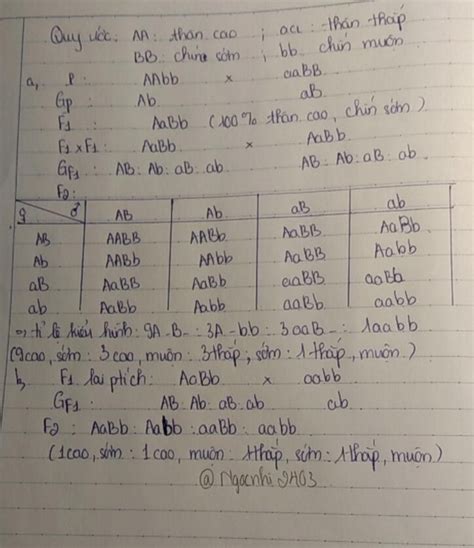 Quy ước: AA: thân cao ; aa: thân thấp
BB: chín sớm ; bb chín muộn
a, P: AAbb x aaBB
Gp: Ab aB
F1: AaBb (100% thân cao, chín sớm)
F1 x F1: AaBb x AaBb
GF1: AB: Ab: aB: ab AB: Ab: aB: ab
F2:
♀ ♂ AB Ab aB ab
AB AABB AABb AaBB AaBb
Ab AABb AAbb AaBB Aabb
aB AaBB AaBb aaBB aaBb
ab AaBb Aabb aaBb aabb
=> tỉ lệ kiểu hình: 9A-B- : 3A-bb : 3aaB- : 1aabb
(9cao, sớm : 3 cao, muộn : 3thấp, sớm : 1thấp, muộn.)
b, F1 lai ptích: AaBb x aabb
GF1: AB: Ab: aB: ab ab
F2: AaBb: Aabb: aaBb: aabb
(1cao, sớm : 1 cao, muộn : 1thấp, sớm : 1thấp, muộn)
@Ngocnhi2403